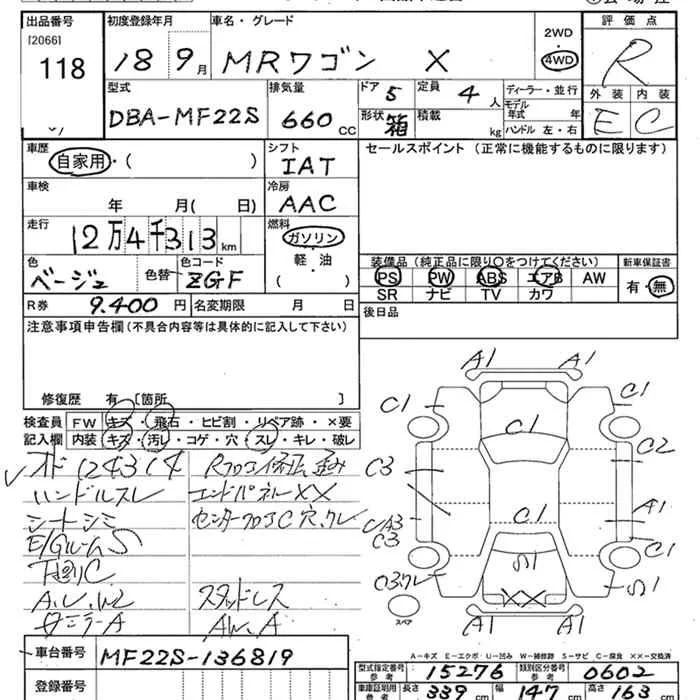 出品番号
[2066]
118
初度登録年月
18 9月
車名・グレード
MRワゴン X
2WD
4WD
評価点
R
外装 内装
E C
型式
DBA-MF22S
排気量
660 CC
ドア 5
形状 箱
定員 4 人
積載 kg
ディーラー・並行
モデル年式 年
ハンドル 左・右
車歴
自家用・( )
シフト
IAT
セールスポイント (正常に機能するものに限ります)
車検
年 月( 日)
冷房
AAC
走行
12万4千313km
燃料
ガソリン
軽・油
( )
色
ベージュ
色替
色コード
ZGF
装備品 (純正品に限り○をつけてください)
PS PW ABS エアB AW
SR ナビ TV カワ
新車保証書
有・無
R券 9.400 円
名変期限 月 日
後日品
注意事項申告欄 (不具合内容等は具体的に記入して下さい)
修復歴 有 [箇所 ]
検査員記入欄
FW キズ・飛石・ヒビ割・リペア跡・×要
内装 キズ・汚レ・コゲ・穴・スレ・キレ・破レ
ハンドルスレ
エンドパネルXX
シートシミ
E/GルームS
下回りC
A.U.W2
スタッドレス
AW.A
A1 A1
C1 C1
C1
C2
C3
C1 A1
C3 C1
S1 S1
XX
スペア
A1 A1
A-キズ E-エクボ U-凹み W-補修跡 S-サビ C-腐食 XX-交換済
車台番号
MF22S-136819
登録番号
型式指定番号 参考 15276
類別区分番号 参考 0602
車庫証明用 参考 長さ 339 cm 幅 147 cm 高さ 163 cm